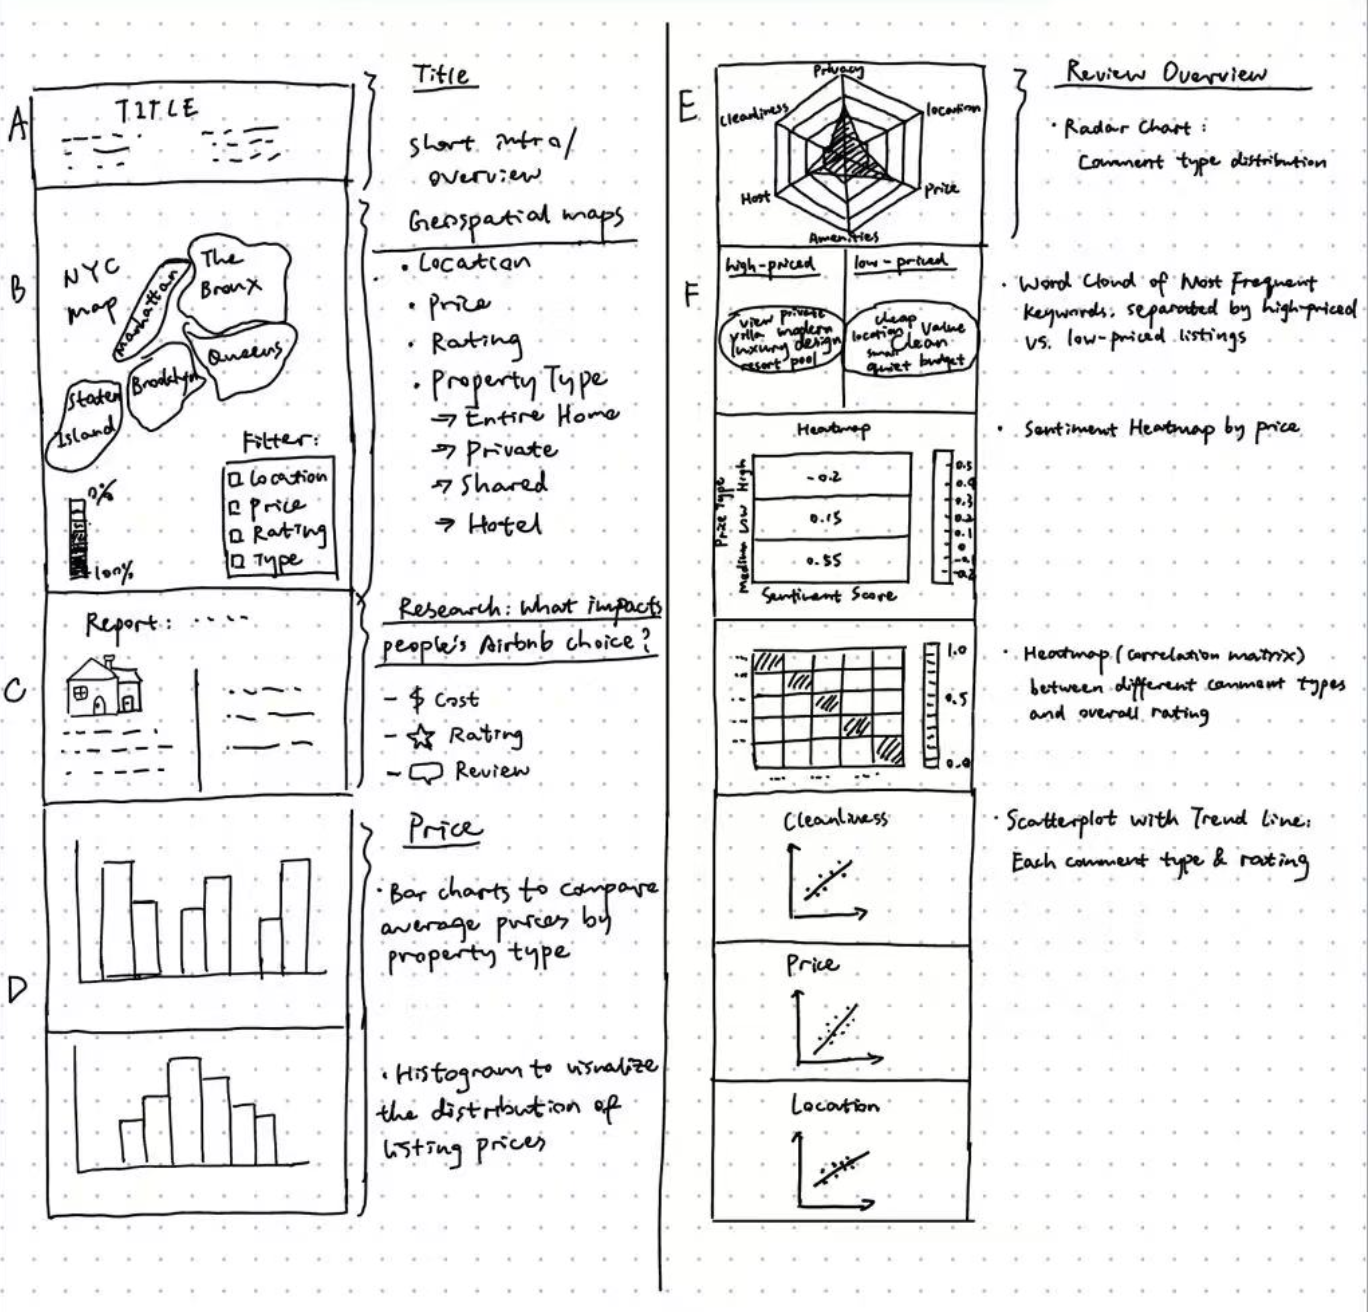 A
TITLE
Title
short intro/
overview
B
NYC
map
The
Bronx
Manhattan
Queens
Brooklyn
Staten
Island
0%
100%
Filter:
Location
Price
Rating
Type
Geospatial maps
• Location
• Price
• Rating
• Property Type
→ Entire Home
→ Private
→ Shared
→ Hotel
C
Report:
Research: What impacts
people's Airbnb choice?
- $ Cost
- ☆ Rating
- Review
D
Price
• Bar charts to compare
average prices by
property type
• Histogram to visualize
the distribution of
listing prices
E
Privacy
Cleanliness
location
Host
Price
Amenities
Review Overview
• Radar Chart:
Comment type distribution
F
high-priced
low-priced
view private
villa modern
luxury design
resort pool
cheap
location value
small clean
quiet budget
• Word Cloud of Most Frequent
Keywords, separated by high-priced
vs. low-priced listings
Heatmap
Price Type
High
Low
Medium
-0.2
0.15
0.55
Sentiment Score
0.5
0.4
0.3
0.2
0.1
0
-0.1
-0.2
• Sentiment Heatmap by price
1.0
0.5
0.0
• Heatmap (correlation matrix)
between different comment types
and overall rating
Cleanliness
Price
Location
• Scatterplot with Trend Line:
Each comment type & rating